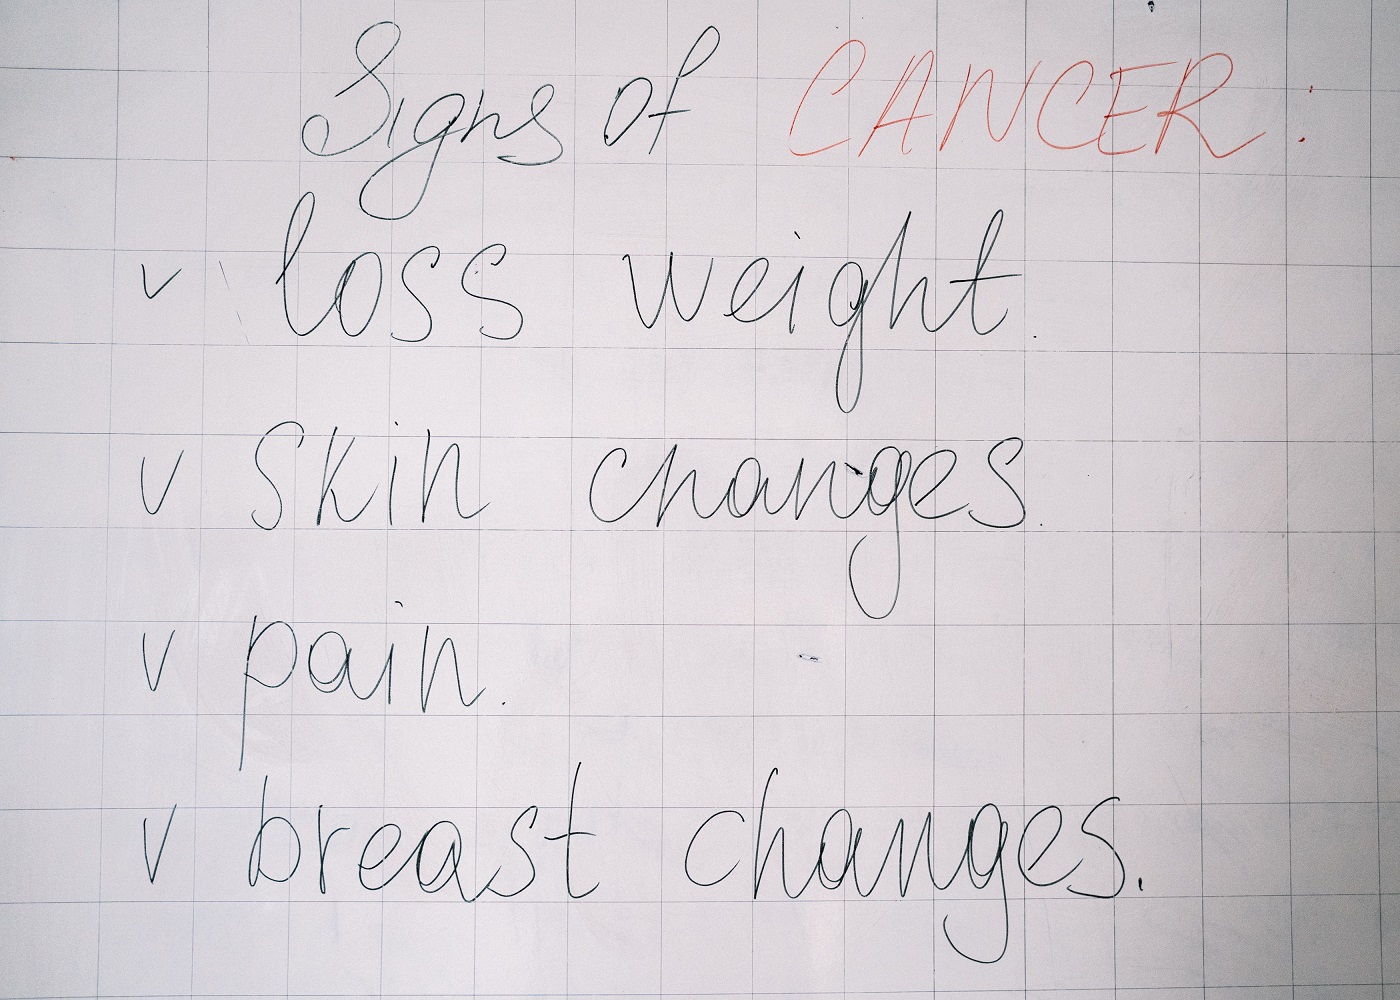 Signs of CANCER:
v loss weight.
v skin changes.
v pain.
v breast changes.